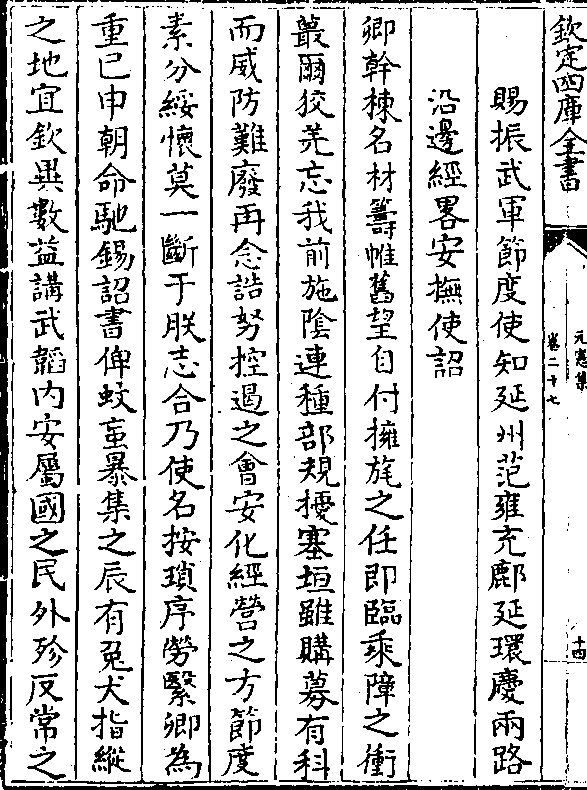 欽定四庫全書
元憲集
卷二十七
十四
賜振武軍節度使知延州范雍充鄜延環慶兩路
沿邊經畧安撫使詔
卿幹棟名材籌帷舊望自付擁旄之任即臨乘障之衝
蕞爾狡羌忘我前施陰連種部規擾塞垣雖購募有科
而威防難廢再念誥努控遏之會安化經營之方節度
素分綏懷莫一斷于朕志合乃使名按瑣序勞繄卿為
重已申朝命馳錫詔書俾蚊䖟暴集之辰有兔犬指縱
之地宜欽異數益講武韜内安屬國之民外殄反常之